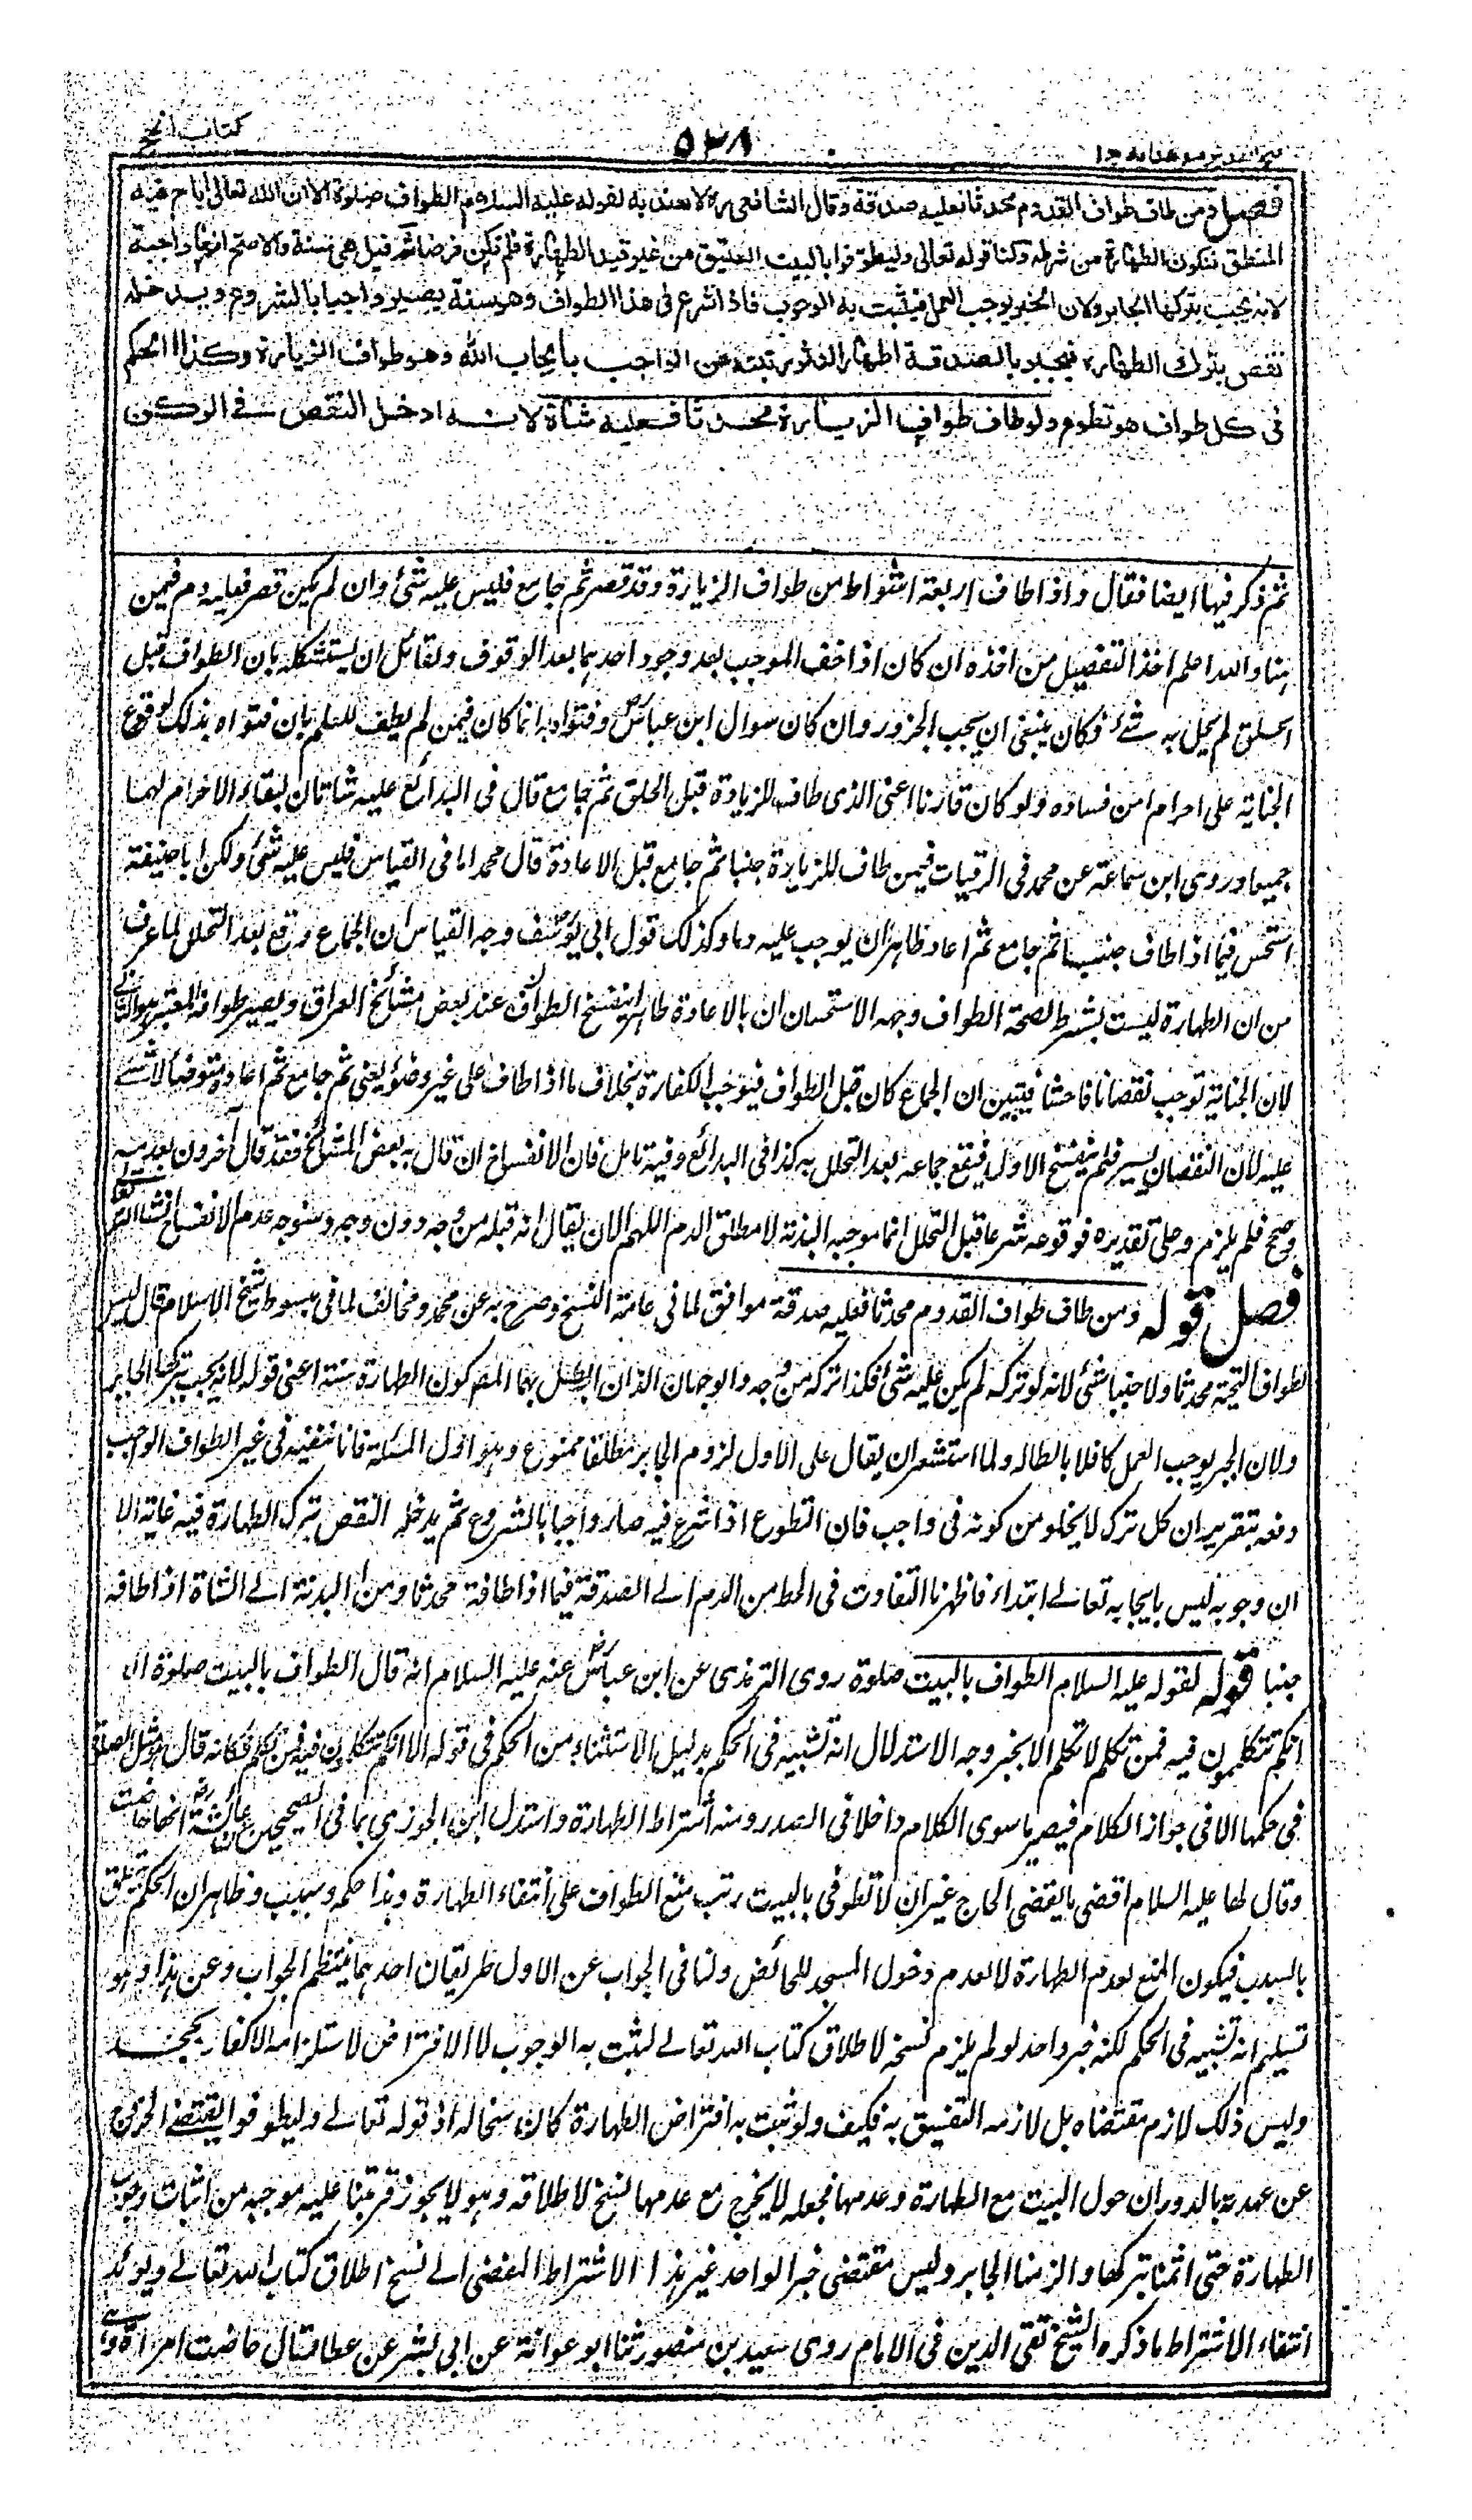 كتاب الحج
٥٣٨
فتح القدير مع هدايه ج١
فصل ومن طاف طواف القدوم محدثا فعليه صدقة وقال الشافعي رح لا يعتد به لقوله عليه السلام الطواف صلوة الا ان الله تعالى اباح فيه
المنطق فتكون الطهارة من شرطه ولنا قوله تعالى وليطوفوا بالبيت العتيق من غير قيد الطهارة فلم تكن فرضا ثم قيل هي سنة والاصح انها واجبة
لانه يجب بتركها الجابر ولان الخبر يوجب العمل فيثبت به الوجوب فاذا شرع في هذا الطواف وهو سنة يصير واجبا بالشروع ويدخله
نقص بترك الطهارة فيجبر بالصدقة اظهارا لدنو رتبته عن الواجب بايجاب الله وهو طواف الزيارة وكذا الحكم
في كل طواف هو تطوع ولو طاف طواف الزيارة محدثا فعليه شاة لانه ادخل النقص في الركن
ثم ذكر فيها ايضا فقال واذا طاف اربعة اشواط من طواف الزيارة وقد قصر ثم جامع فليس عليه شئ وان لم يكن قصر فعليه دم فمن
هنا والله اعلم اخذ التفصيل من اخذه ان كان اذ اخف الموجب بعد وجود احدهما بعد الوقوف ولقائل ان يستشكله بان الطواف قبل
الحلق لم يحل به شئ فكان ينبغي ان يجب الجزور وان كان سوال ابن عباس رض وفتواه به انما كان فيمن لم يطف للعلم بان فتواه بذلك لوقوع
الجناية على احرام امن فساده ولو كان قارنا اعنى الذى طاف للزيارة قبل الحلق ثم جامع قال فى البدائع عليه شاتان لبقاء الاحرام لهما
جميعا وروى ابن سماعة عن محمد فى الرقيات فيمن طاف للزيارة جنبا ثم جامع قبل الاعادة قال محمد اما فى القياس فليس عليه شئ ولكن ابا حنيفة
استحسن فيما اذا طاف جنبا ثم جامع ثم اعاد ظاهرا ان يوجب عليه دما وكذلك قول ابي يوسف وجه القياس ان الجماع وقع بعد التحلل لما عرف
من ان الطهارة ليست بشرط لصحة الطواف وجه الاستحسان ان بالاعادة طاهرا ينفسخ الطواف الاول عند بعض مشائخ العراق ويصير طوافه المعتبر هو الثاني
لان الجناية توجب نقصانا فاحشا فيتبين ان الجماع كان قبل الطواف فيوجب الكفارة بخلاف ما اذا طاف على غير وضؤ يعنى ثم جامع ثم اعاد متوضيا لا شئ
عليه لان النقصان يسير فلم ينفسخ الاول فيقع جماعه بعد التحلل به كذا فى البدائع وفيه تامل فان الانفساخ ان قال به بعض المشائخ فقد قال آخرون بعدمه
وصحح فلم يلزم وعلى تقديره فوقوعه شرعا قبل التحلل انما موجبه البدنة لا مطلق الدم اللهم الا ان يقال انه قبله من وجه دون وجه وسنوجه عدم الانفساخ ان شاء الله تعالى
فصل قوله ومن طاف طواف القدوم محدثا فعليه صدقة موافق لما فى عامة النسخ وصرح به عن محمد ومخالف لما فى مبسوط شيخ الاسلام قال ليس
لطواف التحية محدثا ولا جنبا شئ لانه لو تركه لم يكن عليه شئ فكذا تركه من وجه والوجهان اللذان ابطل بهما المص كون الطهارة سنة اعنى قوله لانه يجب بتركها الجابر
ولان الخبر يوجب العمل كافلا بابطاله ولما استشعر ان يقال على الاول لزوم الجابر مطلقا ممنوع وهو اول المسئلة فانا ننفيه فى غير الطواف الواجب
دفعه بتقرير ان كل ترك لا يخلو من كونه فى واجب فان التطوع اذا شرع فيه صار واجبا بالشروع ثم يدخله النقص بترك الطهارة فيه غاية الا
ان وجوبه ليس بايجابه تعالى ابتداء فاظهرنا التفاوت فى الحط من الدم الى الصدقة فيما اذا طافه محدثا ومن البدنة الى الشاة اذا طافه
جنبا قوله لقوله عليه السلام الطواف بالبيت صلوة روى الترمذى عن ابن عباس رض عنه عليه السلام انه قال الطواف بالبيت صلوة الا
انكم تتكلمون فيه فمن تكلم لا تكلم الا بخير وجه الاستدلال انه تشبيه فى الحكم بدليل الاستثناء من الحكم فى قوله الا انكم تتكلمون فيه فمن تكلم فكانه قال هو مثل الصلوة
فى حكمها الا فى جواز الكلام فيصير ما سوى الكلام داخلا فى الصدر ومنه اشتراط الطهارة واستدل ابن الجوزى بما فى الصحيحين عن عائشة رض انها حاضت
وقال لها عليه السلام اقضى ما يقضى الحاج غير ان لا تطوفى بالبيت رتب منع الطواف على انتفاء الطهارة وهذا حكم وسبب وظاهر ان الحكم يتعلق
بالسبب فيكون المنع لعدم الطهارة لا لعدم دخول المسجد للحائض ولنا فى الجواب عن الاول طريقان احدهما ينتظم الجواب وعن هذا وهو
تسليم انه تشبيه فى الحكم لكنه خبر واحد لو لم يلزم نسخه لاطلاق كتاب الله تعالى لثبت به الوجوب لا الافتراض لاستلزامه الاكفار بجحد
وليس ذلك لازم مقتضاه بل لازمه التفسيق به فكيف ولو ثبت به افتراض الطهارة كان ناسخا له اذ قوله تعالى وليطوفوا يقتضى الخروج
عن عهدته بالدوران حول البيت مع الطهارة وعدمها فجعله لا يخرج مع عدمها نسخ لاطلاقه وهو لا يجوز فرتبنا عليه موجبه من اثبات وجوب
الطهارة حتى اثمنا بتركها والزمنا الجابر وليس مقتضى خبر الواحد غير هذا الا الاشتراط المفضى الى نسخ اطلاق كتاب الله تعالى ويؤيد
انتفاء الاشتراط ما ذكره الشيخ تقى الدين فى الامام روى سعيد بن منصور ثنا ابو عوانة عن ابى بشر عن عطا قال حاضت امراة وهى